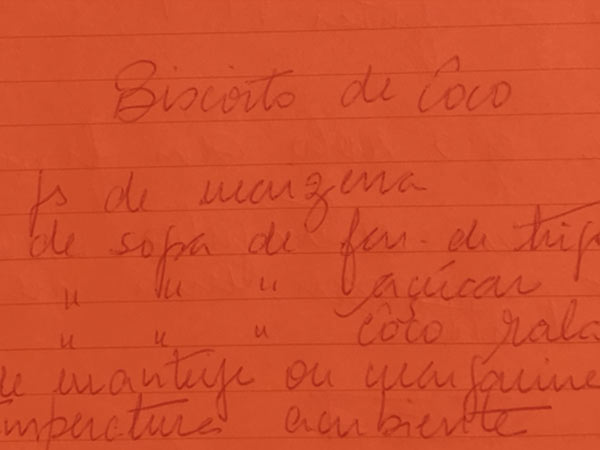 Biscoito de côco
de maizena
de sopa de far. de trigo
" " " açúcar
" " " côco rala
de manteiga ou margarine
mperatura ambiente